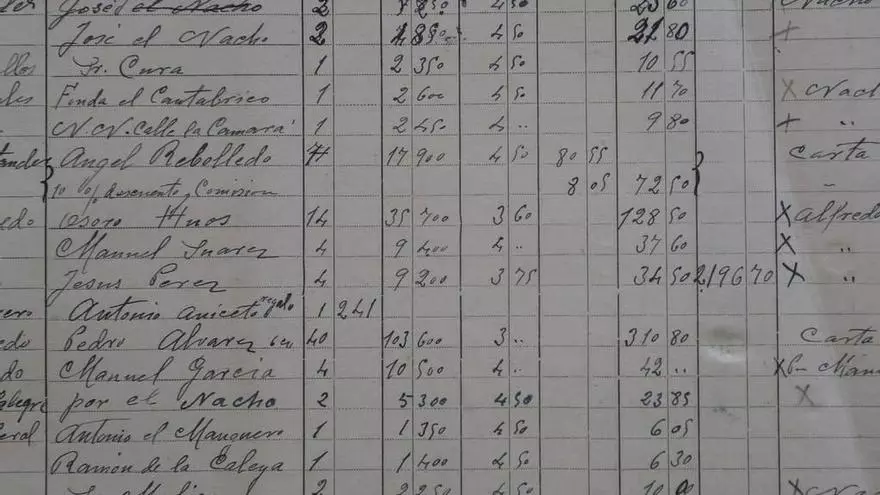 José el Nacho 2 4 50 Nacho
José el Nacho 2 4 850 4 50 21 80 +
Sr. Cura 1 2 350 4 50 10 55
Fonda el Cantabrico 1 2 600 4 50 11 70 X Nach
N. N. Calle la Camara 1 2 450 4 .. 9 80 + "
Angel Rebolledo 7 17 900 4 50 80 55 Carta
10 % descuento y Comision 8 05 72 50 "
edo Osoro Hnos 14 35 700 3 60 128 50 X Alfredo
Manuel Suarez 4 9 400 4 .. 37 60 X "
Jesus Perez 4 9 200 3 75 34 50 2,196 70 X "
ero Antonio aniceto regalo 1 241
edo Pedro Alvarez 40 103 600 3 .. 310 80 Carta
do Manuel Garcia 4 10 500 4 .. 42 .. X
por el Nacho 2 5 300 4 50 23 85 X
Antonio el Manguero 1 1 350 4 50 6 05
Ramón de la Caleya 1 1 400 4 50 6 30
2 2 250 4 50 10 X